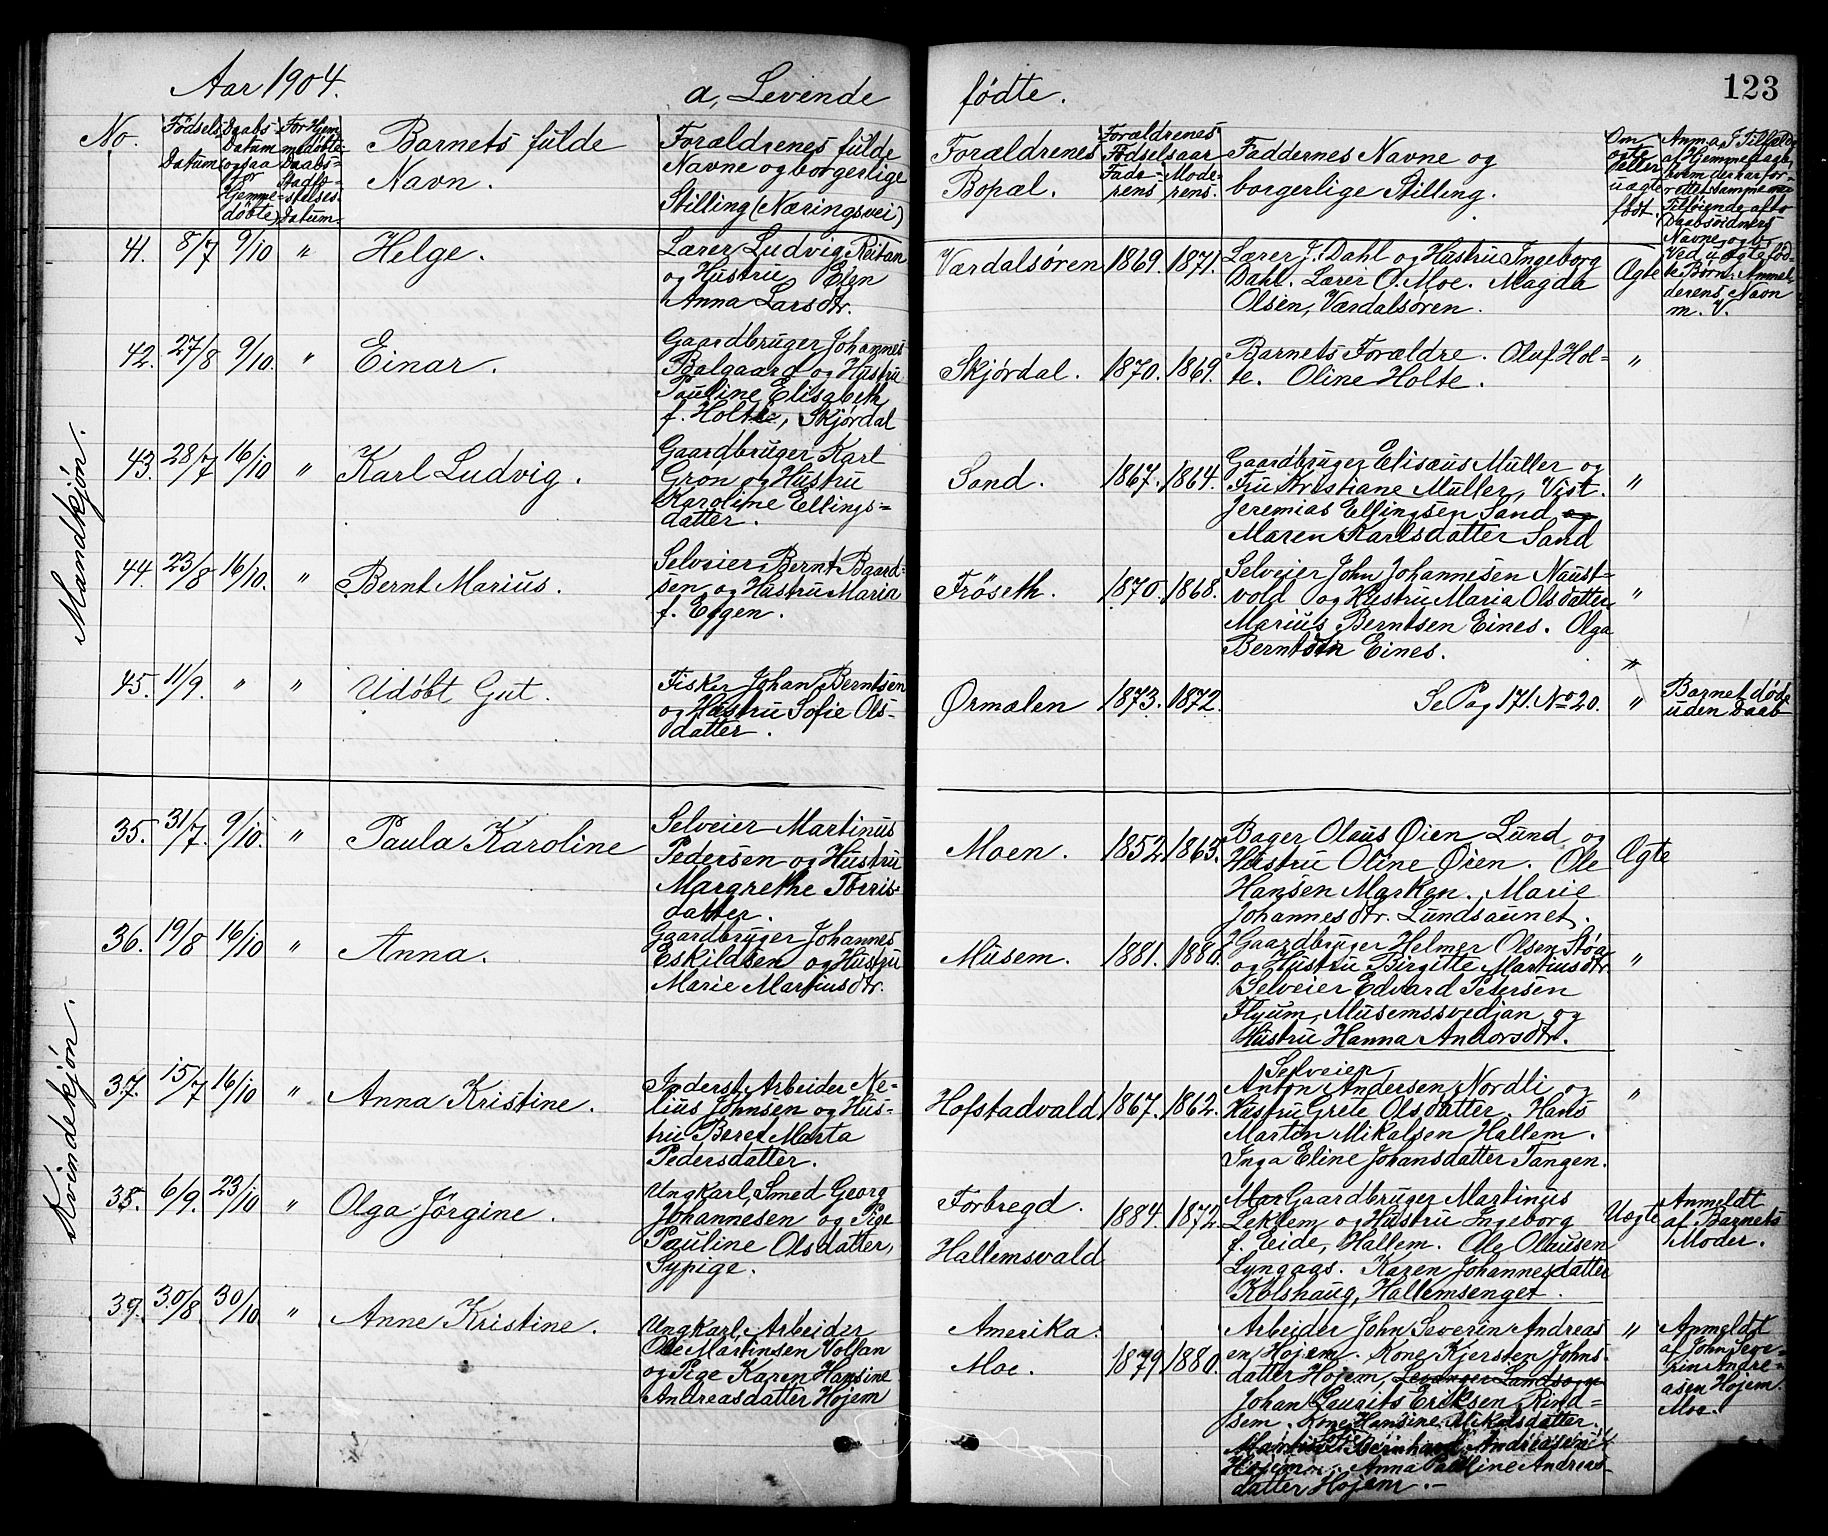 Aar 1904.
a, Levende
fødte.
123
No.
Fødsels
Datum
Daabs-
Datum
ogsaa
for
Hjemme-
døbte)
For Hjem
medøbte
Daabs-
Stadfæ-
stelses-
Datum.
Barnets fulde
Navn.
Forældrenes fulde
Navne og borgerlige
Stilling (Næringsvei)
Forældrenes
Bopæl.
Forældrenes
Fødselsaar
Fade-
rens
Mode-
rens.
Faddernes Navne og
borgerlige Stilling.
Om
ægte
eller
uægte
født.
Anm. I Tilfælde
af Hjemmedaab,
hvem der har for-
rettet samme med
Tilføiende af to
Daabsvidners
Navne, og
Ved uægte fød-
te Børn: Anmel-
derens Navn
m. V.
Mandkjøn.
41. 8/7 9/10 " Helge.
Lærer Ludvig Reitan
og Hustru Elen
Anna Larsdtr.
Værdalsøren 1869. 1871.
Lærer J. Dahl og Hustru Ingeborg
Dahl. Lærer O. Moe. Magda
Olsen, Værdalsøren.
Ægte
42. 27/8 9/10. " Einar.
Gaardbruger Johannes
Balgaard og Hustru
Pauline Elisabeth
f. Holte, Skjørdal
Skjørdal. 1870. 1869.
Barnets Forældre. Oluf Hol-
te. Oline Holte.
"
43. 28/7 16/10 " Karl Ludvig.
Gaardbruger Karl
Grøn og Hustru
Karoline Ellings-
datter.
Sand. 1867. 1864.
Gaardbruger Elisæus Müller og
Fru Kristiane Müller, Vist.
Jeremias Ellingsen Sand og
Maren Karlsdatter Sand
"
44. 23/8 16/10. " Bernt Marius.
Selveier Bernt Baard-
sen og Hustru Maria
f. Eggen.
Frøseth. 1870. 1868.
Selveier John Johannesen Naust-
vold og Hustru Maria Olsdatter
Marius Berntsen Eines. Olga
Berntsen Eines.
"
"
45. 11/9. " " Udøbt Gut.
Fisker Johan Berntsen
og Hustru Sofie Ols-
datter.
Ørmælen 1873. 1872.
Se Pag 171. No 20.
"
Barnet døde
uden Daab
Kvindekjøn.
35. 31/7. 9/10. " Paula Karoline
Selveier Martinus
Pedersen og Hustru
Margrethe Torris-
datter.
Moen. 1852 1863.
Bager Olaus Øien Lund og
Hustru Oline Øien. Ole
Hansen Marken. Marie
Johannesdtr. Lundsaunet.
Ægte
36. 19/8 16/10 " Anna.
Gaardbruger Johannes
Eskildsen og Hustru
Marie Martiusdtr.
Musem. 1881. 1880.
Gaardbruger Helmer Olsen Støa
og Hustru Birgitte Martiusdtr.
Selveier Edvard Petersen
Flyum, Musemssvedjan og
Hustru Hanna Andorsdtr.
"
37. 15/7 16/10 " Anna Kristine.
Inderst, Arbeider Ne-
lius Johnsen og Hus-
tru Beret Marta
Pedersdatter.
Hofstadvald 1867. 1862.
Selveier
Anton Andersen Nordli og
Hustru Grete Olsdatter. Hans
Martin Mikalsen Hallem.
Inga Eline Johansdatter Tangen.
"
38. 6/9. 23/10 " Olga Jørgine.
Ungkarl, Smed Georg
Johannesen og Pige
Pauline Olsdatter,
Sypige.
Forbregd
Hallemsvald
1884. 1872.
Gaardbruger Martinus
Leklem og Hustru Ingeborg
f. Eide, Hallem. Ole Olausen
Lyngaas. Karen Johannesdatter
Kolshaug, Hallemsenget.
Uægte
Anmeldt
af Barnets
Moder.
39. 30/8 30/10 " Anne Kristine.
Ungkarl, Arbeider
Ole Martinsen Volhan
og Pige Karen Hansine
Andreasdatter Højem
Amerika.
Moe.
1879 1880.
Arbeider John Severin Andreas
en Højem. Kone Kjersten Johns-
datter Højem, Levanger Landsogn
Johan Laurits Eriksen Rind-
sem. Kone Hansine Mikalsdatter.
Bernhard Andreasen
Højem. Anna Pauline Andreas-
datter Højem.-
"
Anmeldt
af John Seve-
rin Andre-
asen Højem.
Moe.